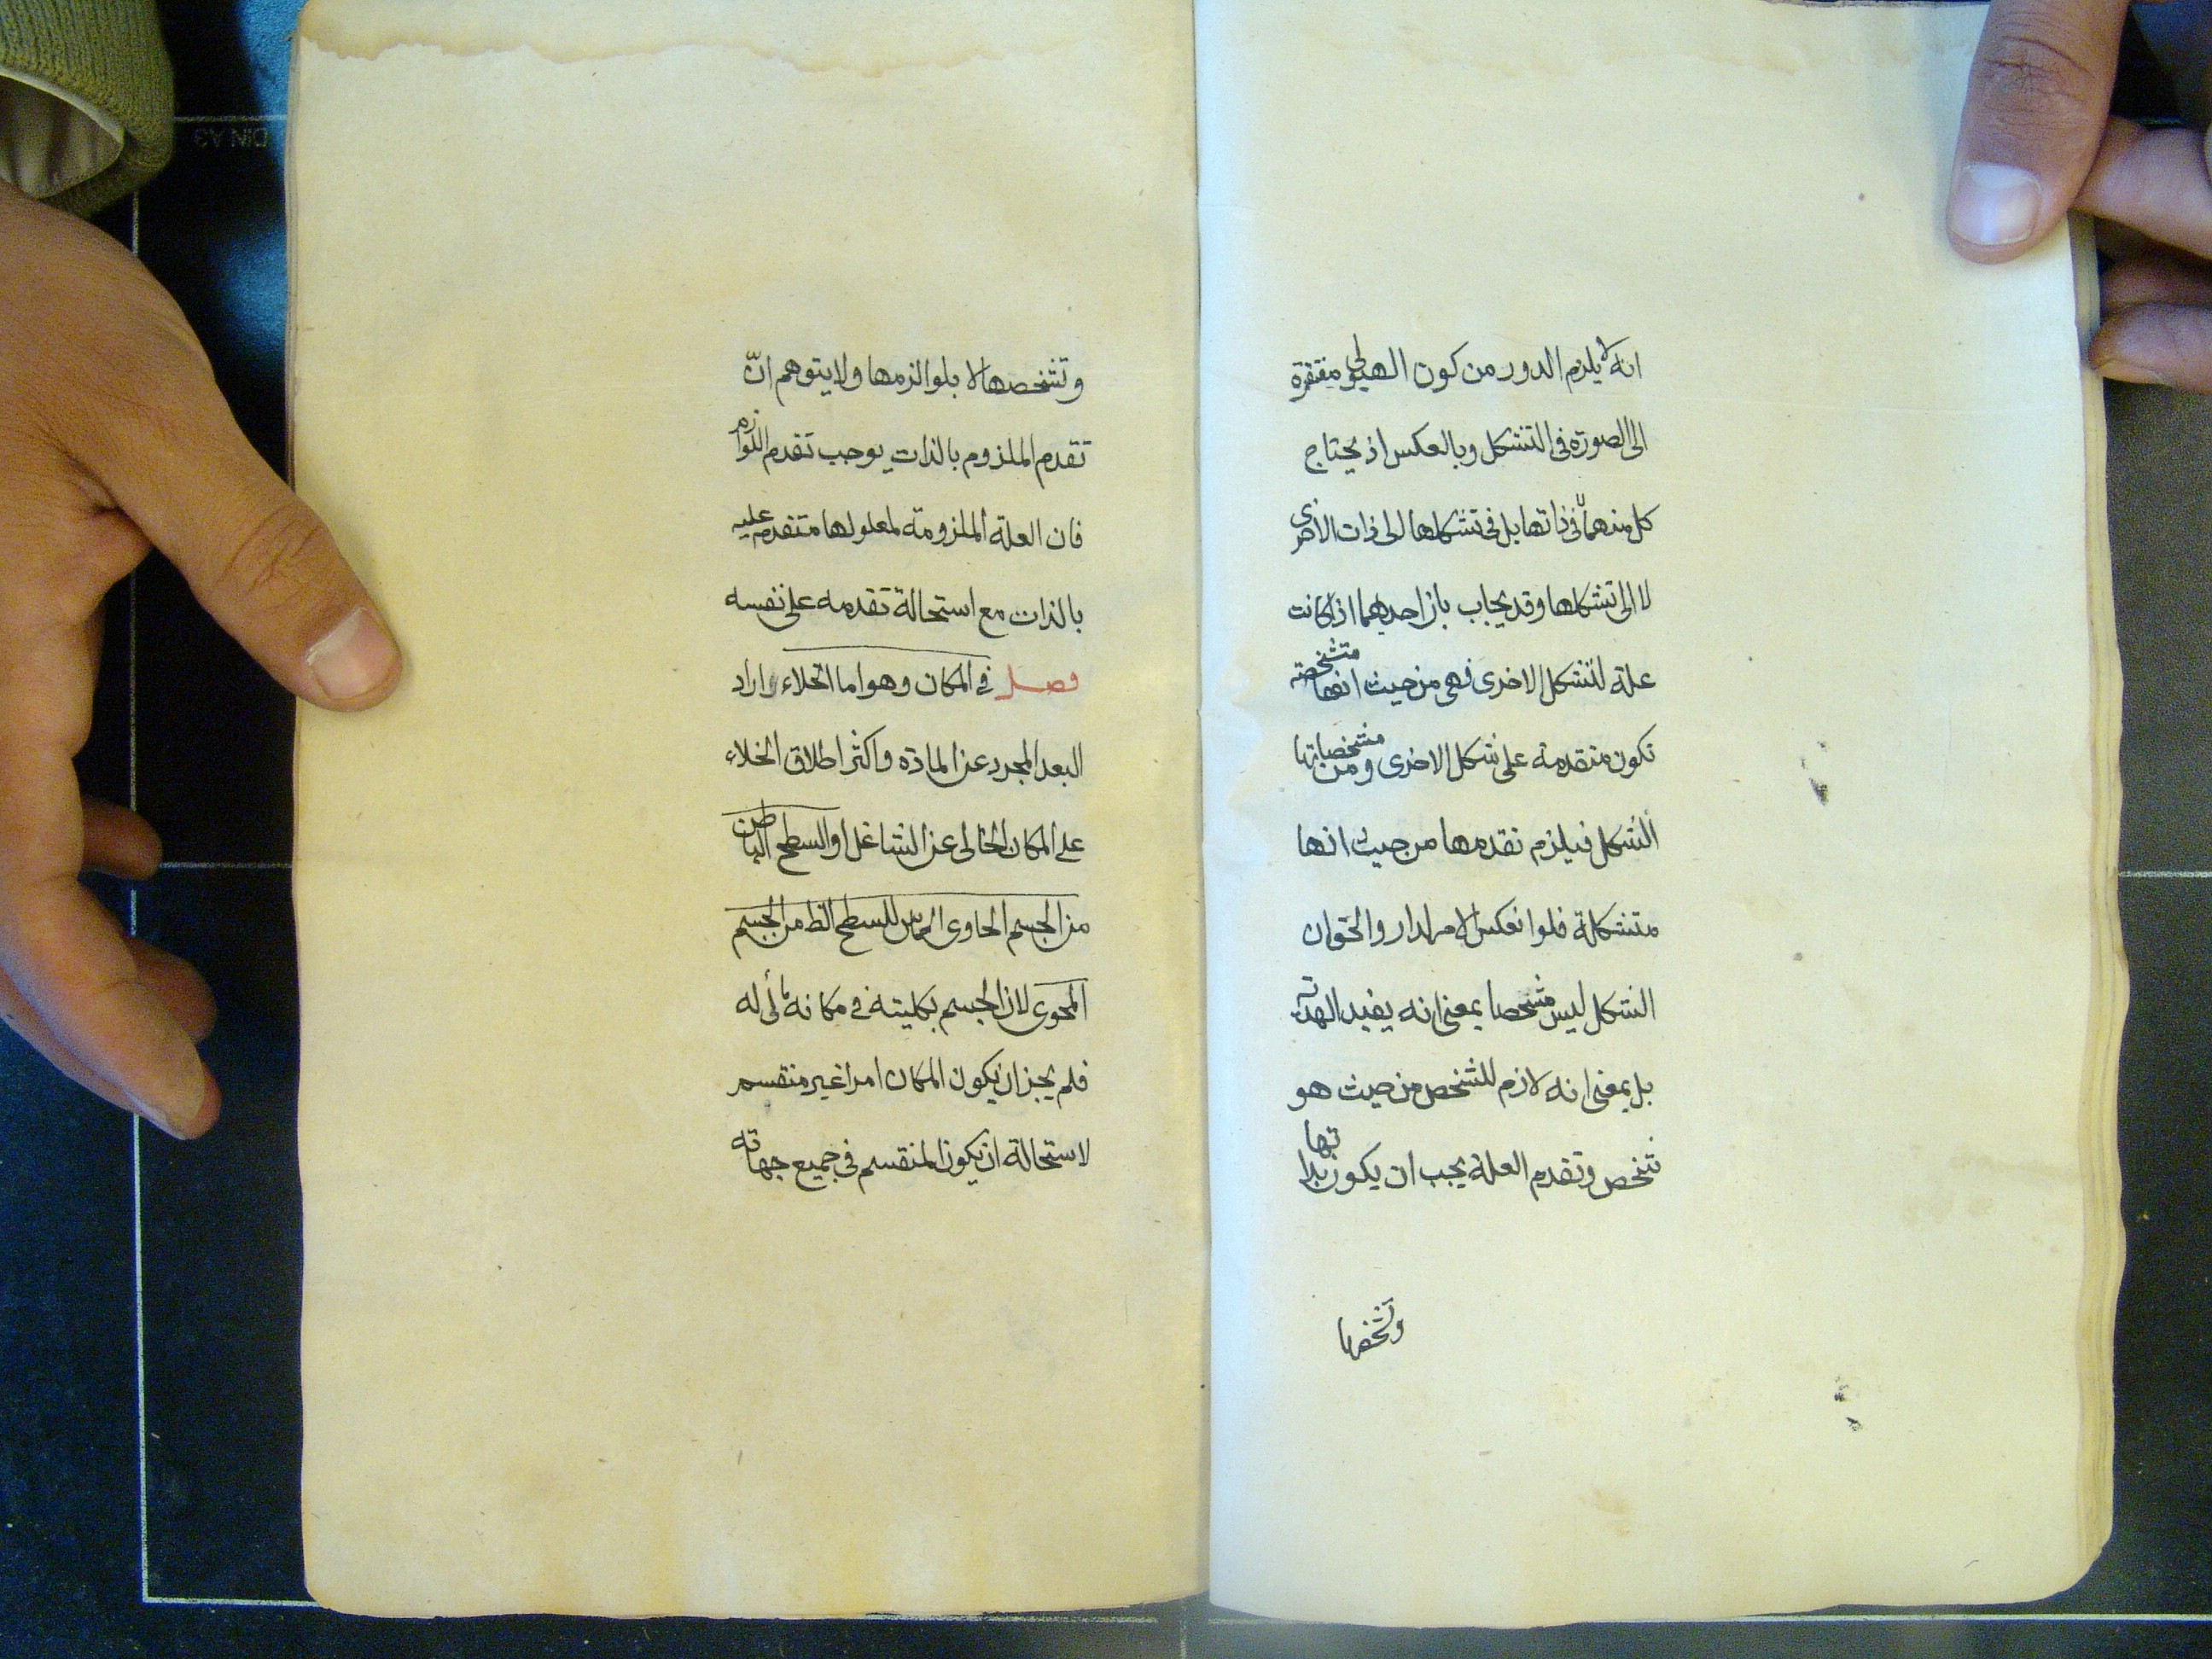 انه لا يلزم الدور من كون الهيولى مفتقرة
الى الصورة فى التشكل وبالعكس اذ يحتاج
كل منهما لا فى ذاتها بل فى تشكلها الى ذات الاخرى
لا الى تشكلها وقد يجاب بان احديهما اذا كانت
علة لتشكل الاخرى فهى من حيث انها متشخصة
تكون متقدمة على شكل الاخرى ومن مشخصاتها
الشكل فيلزم تقدمها من حيث انها
متشكلة فلو انعكس الامر لدار والحق ان
الشكل ليس مشخصا بمعنى انه يفيد الهذية
بل بمعنى انه لازم للشخص من حيث هو
شخص وتقدم العلة يجب ان يكون بذاتها
وتشخصها
وتشخصها لا بلوازمها ولا يتوهم انّ
تقدم الملزوم بالذات يوجب تقدم اللوازم
فان العلة الملزومة لمعلولها متقدم عليه
بالذات مع استحالة تقدمه على نفسه
فصل فى المكان وهو اما الخلاء واراد
البعد المجرد عن المادة واكثر اطلاق الخلاء
على المكان الخالى عن الشاغل او السطح الباطن
من الجسم الحاوى المماس للسطح الظ من الجسم
المحوى لان الجسم بكليته فى مكانه مالئ له
فلم يجز ان يكون المكان امرا غير منقسم
لاستحالة ان يكون المنقسم فى جميع جهاته
DIN A3